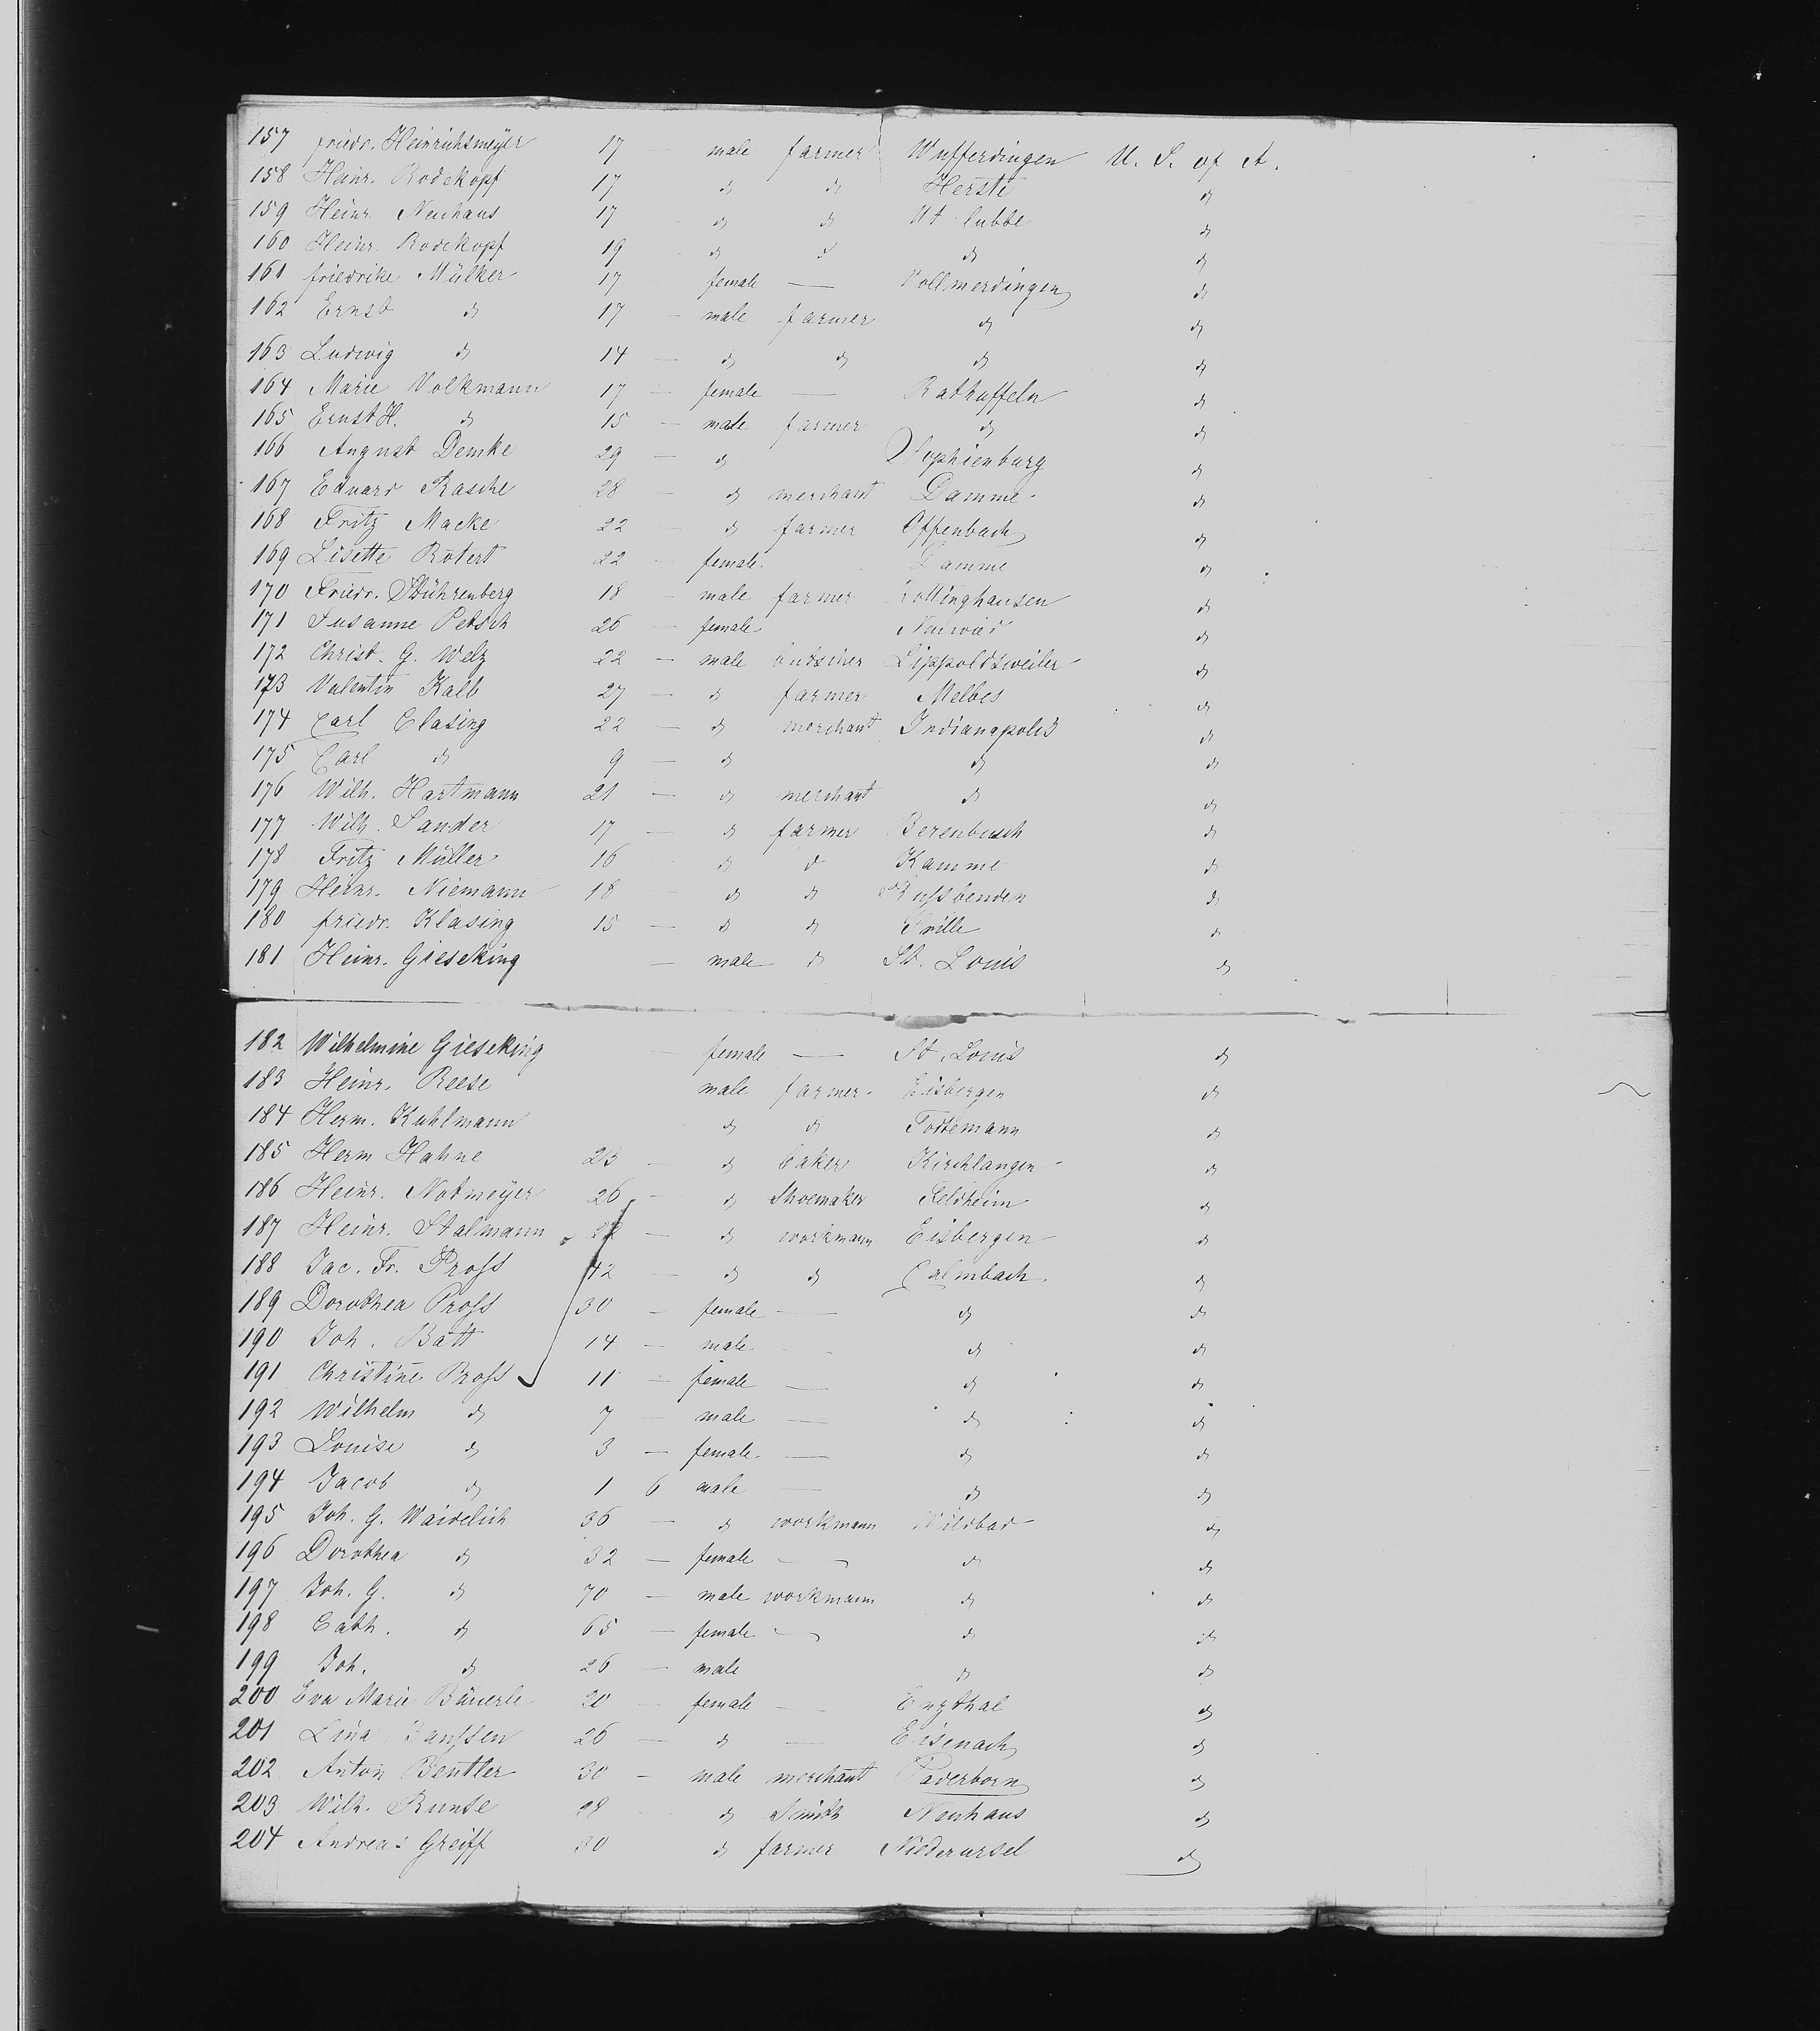 157 friedr. Heinrichsmeyer 17 — male farmer Wufferdingen U. S. of A.
158 Heinr. Rodekopf 17 do do Herste do
159 Heinr. Neuhaus 17 — do do Ut lubbe do
160 Heinr. Rodekopf 19 — do do do do
161 friedrike Mülker 17 — female — Vollmerdingen do
162 Ernst do 17 — male farmer do do
163 Ludwig do 14 — do do do do
164 Marie Volkmann 17 — female — Rathuffeln do
165 Ernst H. do 15 — male farmer do do
166 August Demke 29 — do Sophienburg do
167 Eduard Rasche 28 — do merchant Damme do
168 Fritz Macke 22 — do farmer Offenbach do
169 Lisette Rotert 22 — female Damme do
170 Friedr. Stührenberg 18 — male farmer Rottinghausen do
171 Susanne Petsch 26 — female Neuwied do
172 Christ. G. Welz 22 — male butscher Lippoldsweiler do
173 Valentin Kalb 27 — do farmer Melbes do
174 Carl Clasing 22 — do merchant Indianapolis do
175 Carl do 9 — do do do
176 Wilh. Hartmann 21 — do merchant do do
177 Wilh. Sander 17 — do farmer Berenbusch do
178 Fritz Müller 16 do do Kamme do
179 Heinr. Niemann 18 — do do Russbenden do
180 friedr. Klasing 15 — do do Frille do
181 Heinr. Gieseking — male do St. Louis do
182 Wilhelmine Gieseking — female — St. Louis do
183 Heinr. Reese male farmer Eisbergen do
184 Herm. Kuhlmann do do Todtemann do
185 Herm Hahne 23 — do baker Kirchlangen do
186 Heinr. Notmeyer 26 — do Shoemaker Feldheim do
187 Heinr. Stalmann — do workmann Eisbergen do
188 Jac. Fr. Pross 42 — do do Calmbach do
189 Dorothea Pross 30 — female — do do
190 Joh. Batt 14 — male — do do
191 Christine Pross 11 — female — do do
192 Wilhelm do 7 — male — do do
193 Louise do 3 — female — do do
194 Jacob do 1 6 male — do do
195 Joh. G. Waidelich 36 — do workmann Wildbad do
196 Dorothea do 32 — female — do do
197 Joh. G. do 70 — male workmann do do
198 Cath. do 65 — female — do do
199 Joh. do 26 — male do do
200 Eva Marie Bäuerle 20 — female — Enzthal do
201 Lina Janssen 26 — do — Eisenach do
202 Anton Bentler 30 — male merchant Paderborn do
203 Wilh. Runte do Smith Neuhaus do
204 Andreas Greiff 30 do farmer Niederursel do